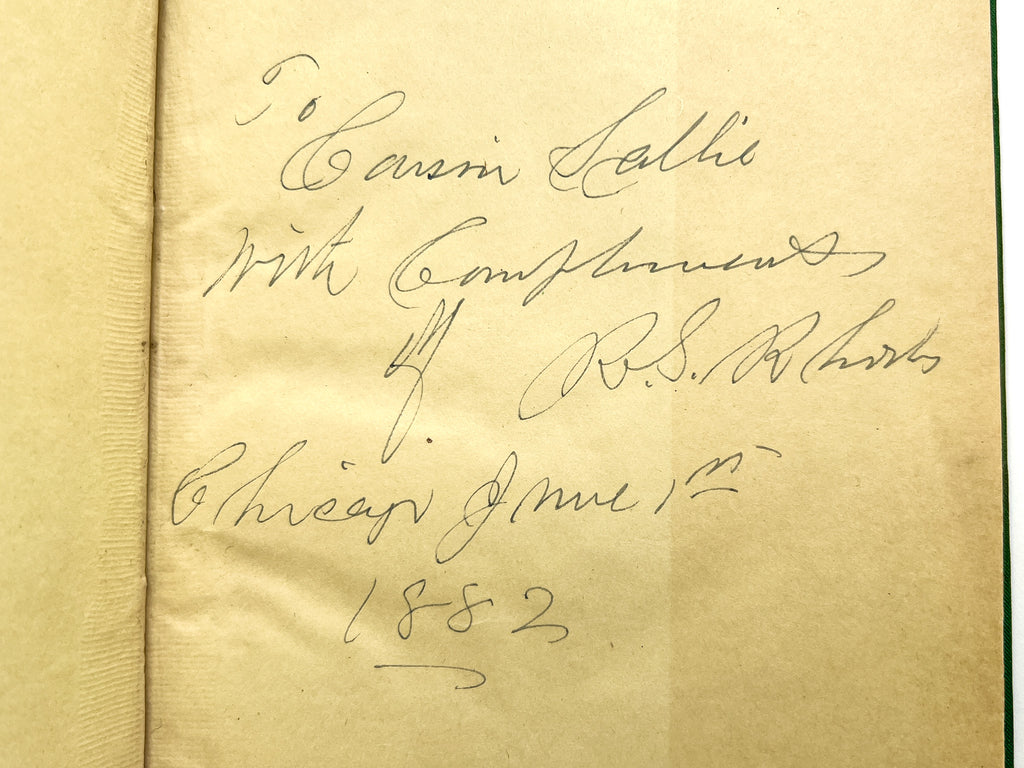 To
Cousin Sallie
With Compliments
of R. S. Rhodes
Chicago June 1st
1882